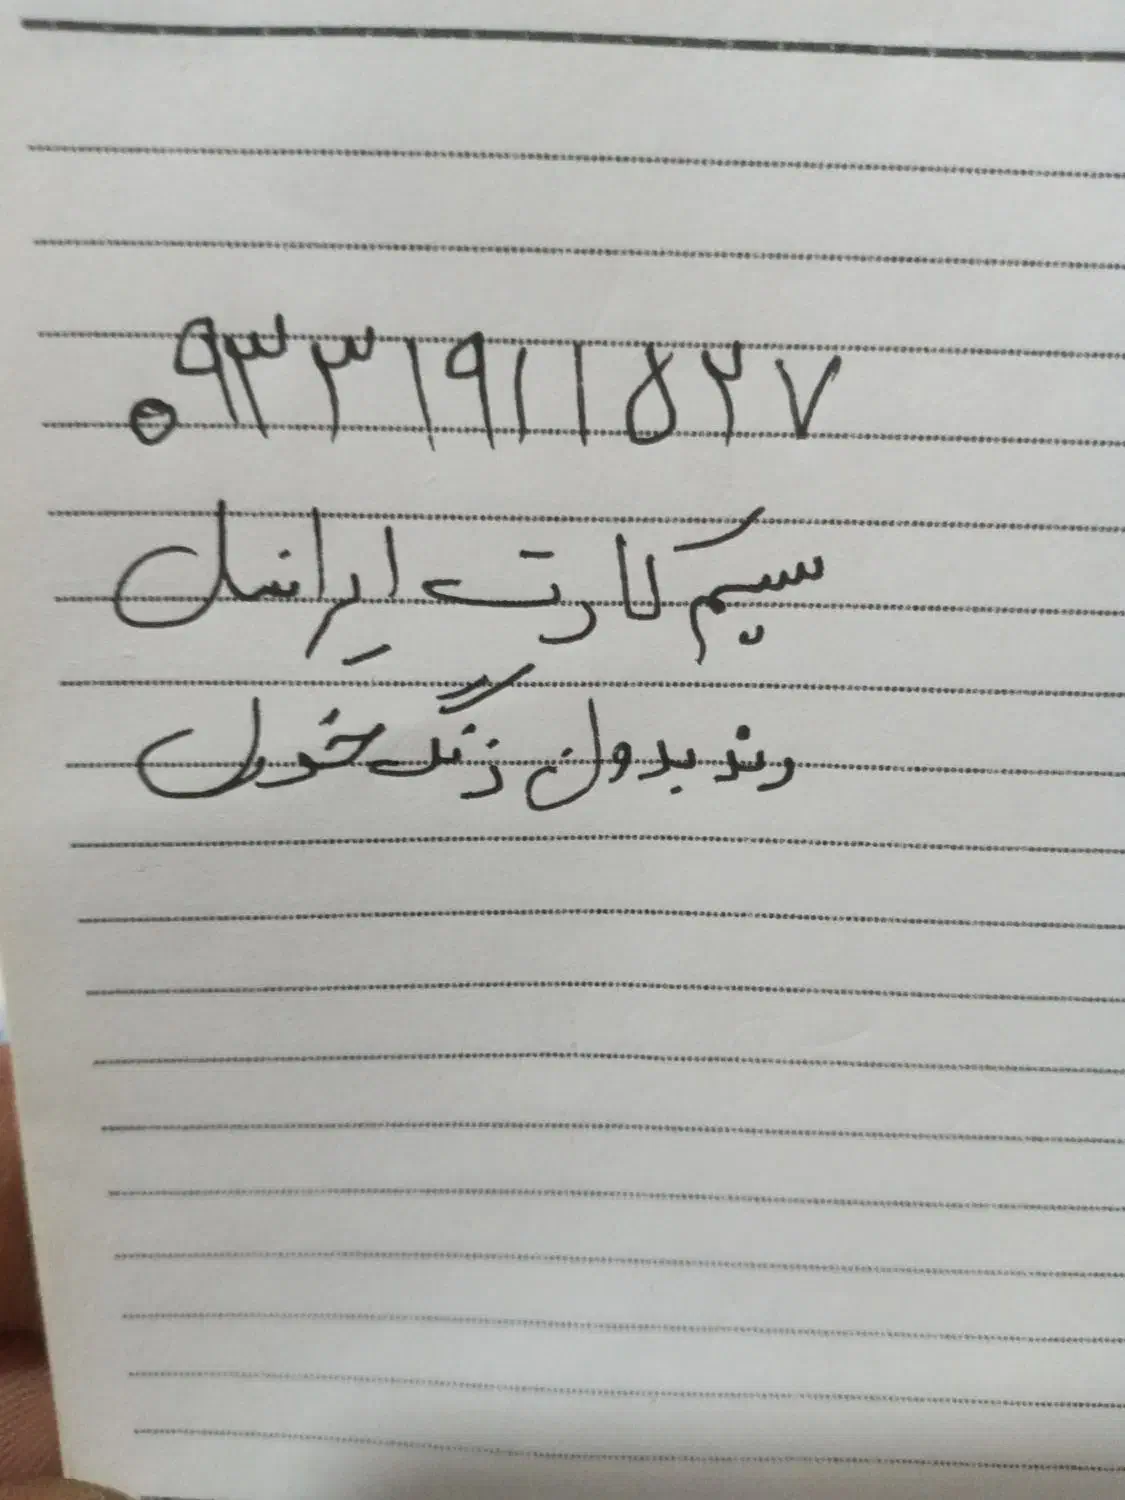 ۰۹۳۳۱۹۱۱۵۲۷
سیم کارت ایرانسل
رند بدون زنگ خور